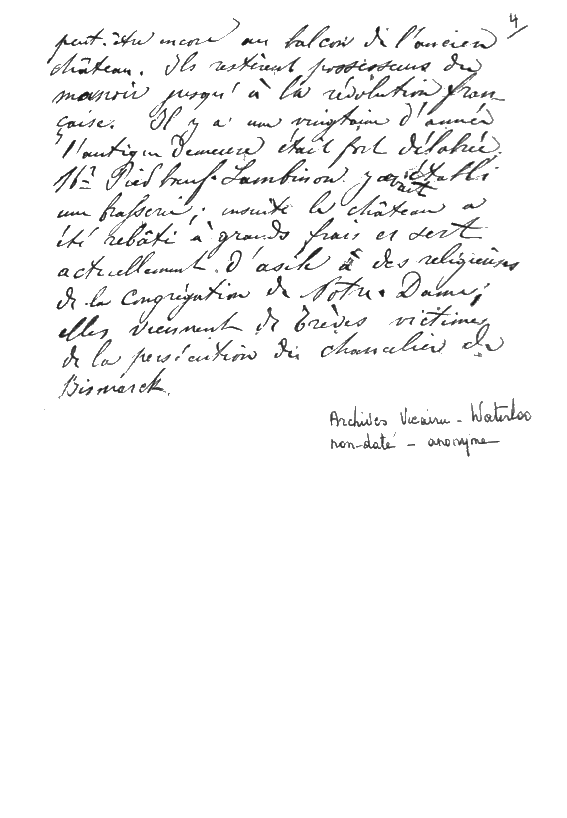 4
peut-être encore au balcon de l'ancien
château. Ils restèrent possesseurs du
manoir jusqu'à la révolution fran
çaise. Il y a une vingtaine d'année
l'antique demeure était fort délabrée.
Mr Piedboeuf-Lambinon y avait établi
une brasserie; ensuite le château a
été rebâti à grands frais et sert
actuellement d'asile à des religieuses
de la Congrégation de Notre-Dame;
elles viennent de Trèves victimes
de la persécution du chancelier de
Bismarck.
Archives Vicairie - Waterloo
non-daté - anonyme